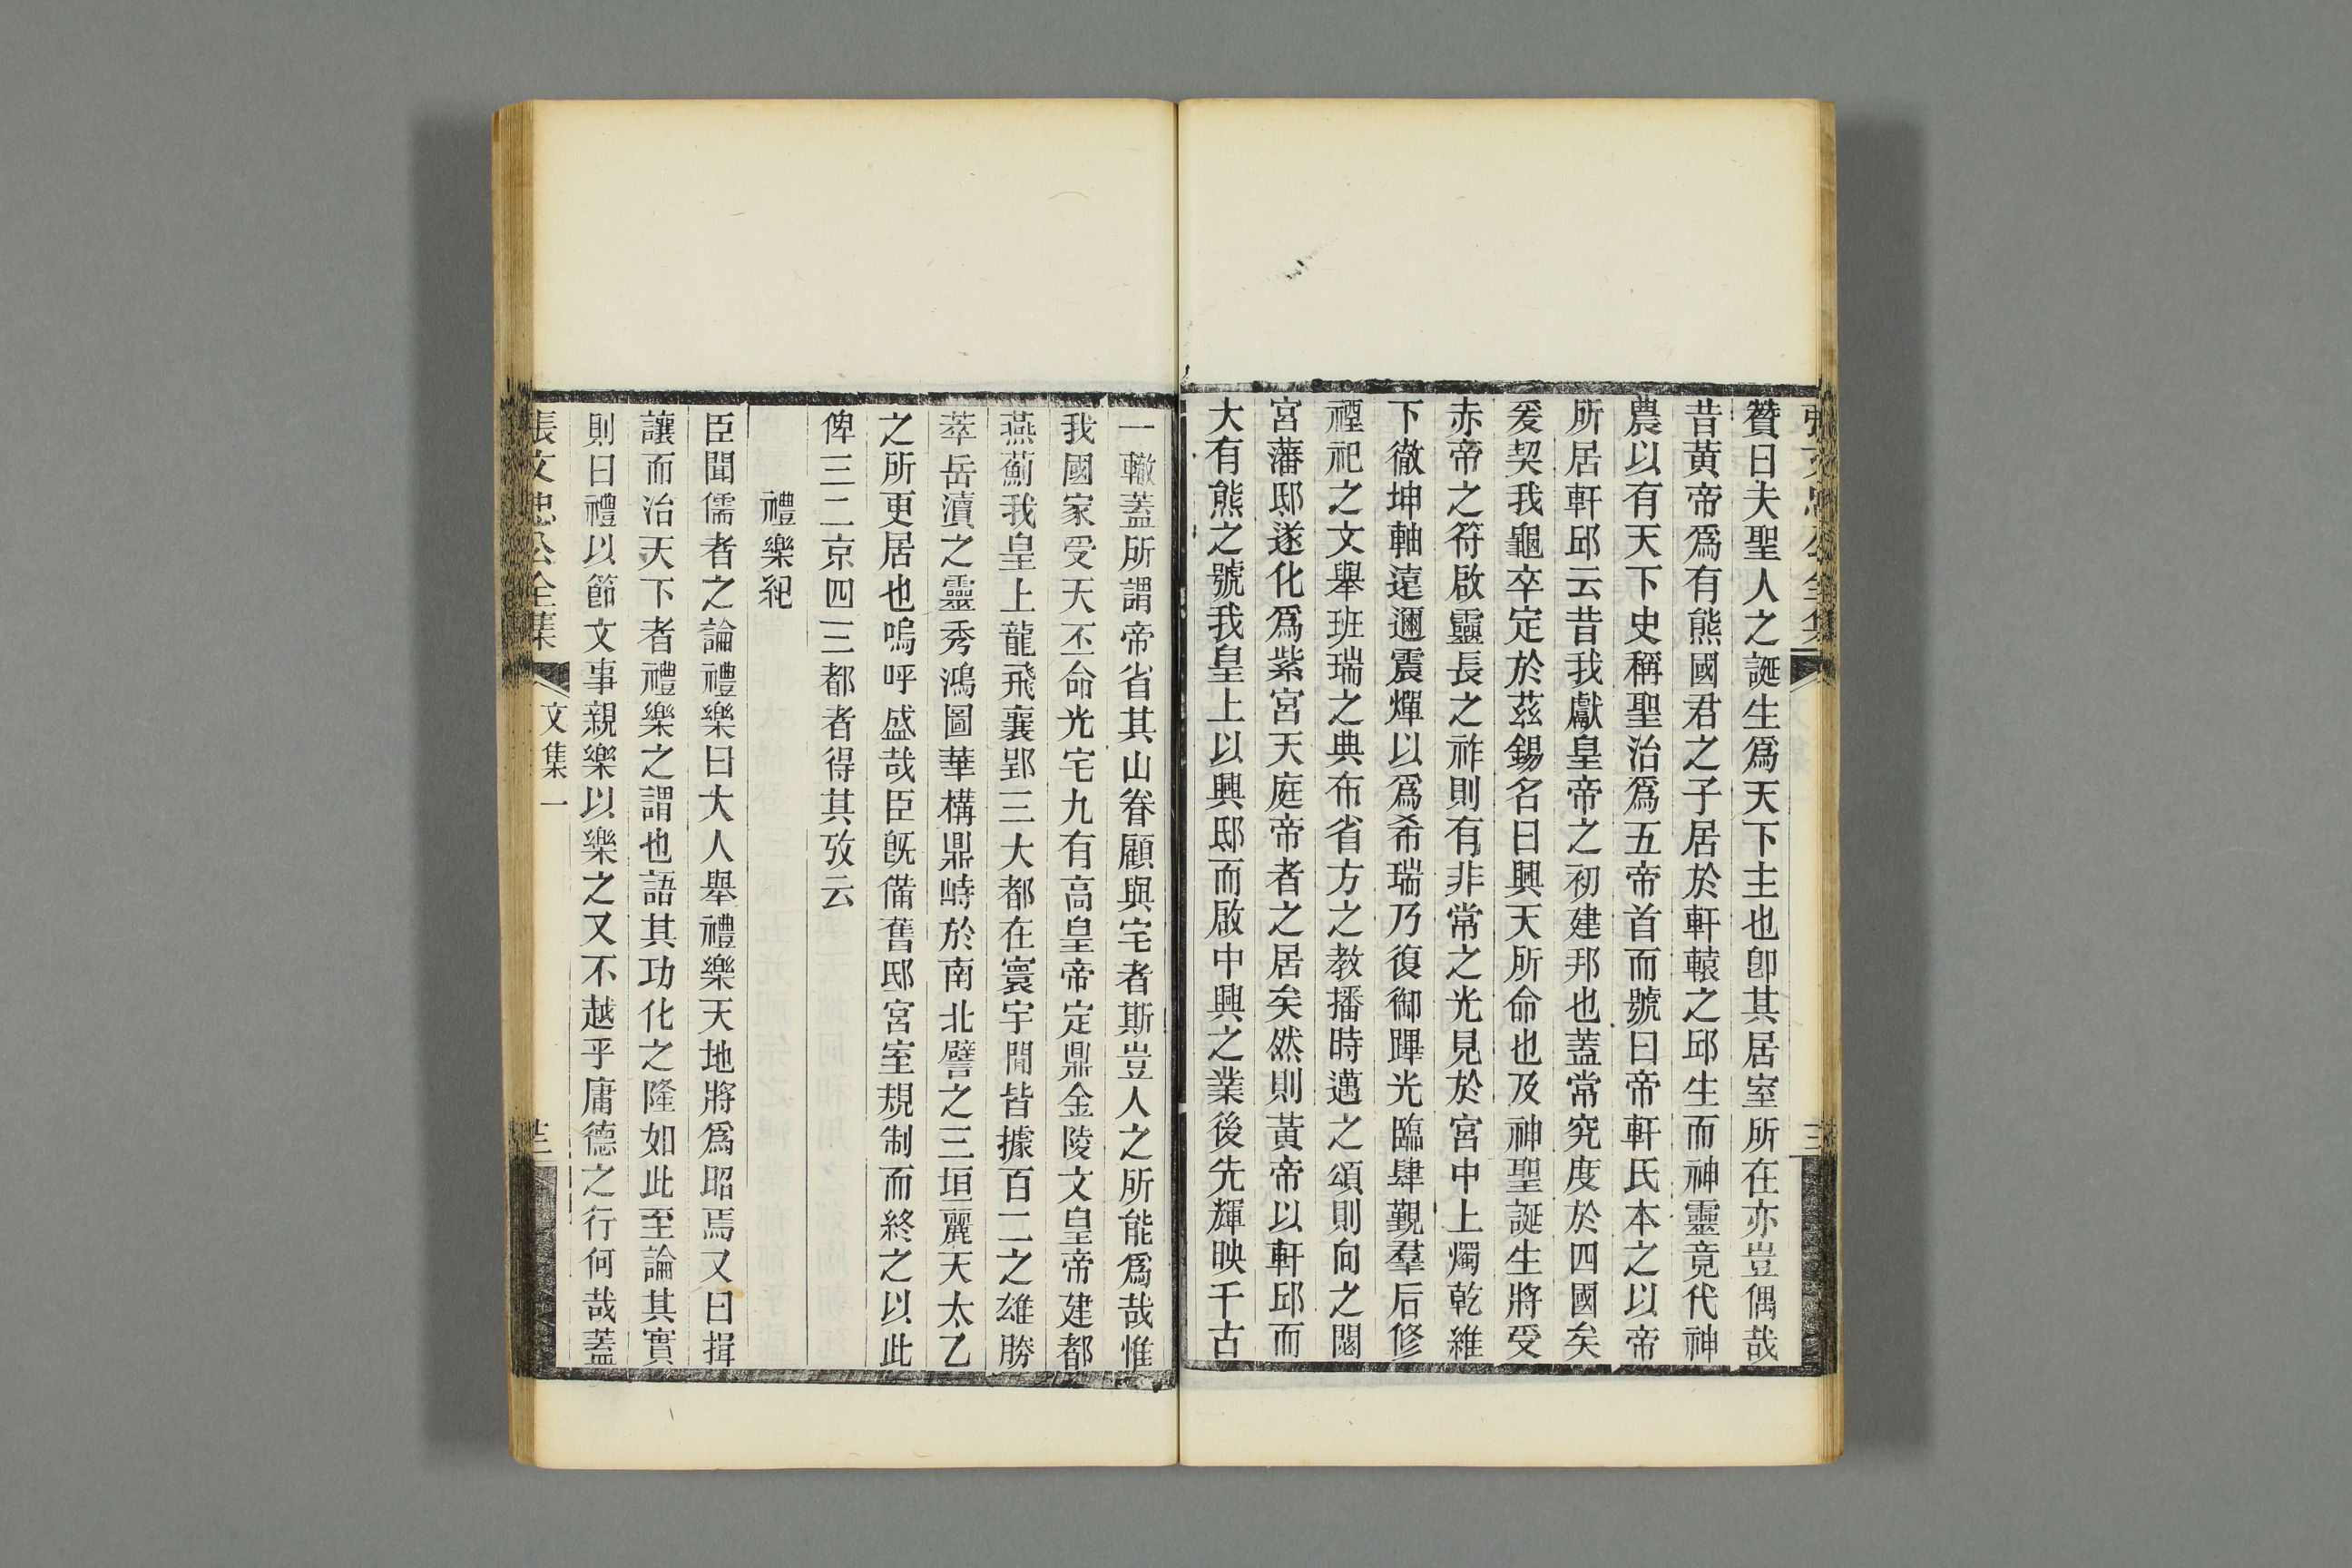 贊曰夫聖人之誕生爲天下主也卽其居室所在亦豈偶哉
昔黃帝爲有熊國君之子居於軒轅之邱生而神靈竟代神
農以有天下史稱聖治爲五帝首而號曰帝軒氏本之以帝
所居軒邱云昔我獻皇帝之初建邦也蓋常究度於四國矣
爰契我龜卒定於茲錫名曰興天所命也及神聖誕生將受
赤帝之符啟靈長之祚則有非常之光見於宮中上燭乾維
下徹坤軸遠邇震燀以爲希瑞乃復御蹕光臨肆覲羣后修
禋祀之文舉班瑞之典布省方之教播時邁之頌則向之閟
宮藩邸遂化爲紫宮天庭帝者之居矣然則黃帝以軒邱而
大有熊之號我皇上以興邸而啟中興之業後先輝映千古
一轍蓋所謂帝省其山眷顧與宅者斯豈人之所能爲哉惟
我國家受天丕命光宅九有高皇帝定鼎金陵文皇帝建都
燕薊我皇上龍飛襄郢三大都在寰宇間皆據百二之雄勝
萃岳瀆之靈秀鴻圖華構鼎峙於南北譬之三垣麗天太乙
之所更居也嗚呼盛哉臣旣備舊邸宮室規制而終之以此
俾三二京四三都者得其攷云
禮樂紀
臣聞儒者之論禮樂曰大人舉禮樂天地將爲昭焉又曰揖
讓而治天下者禮樂之謂也語其功化之隆如此至論其實
則曰禮以節文事親樂以樂之又不越乎庸德之行何哉蓋
張文忠公全集 文集一